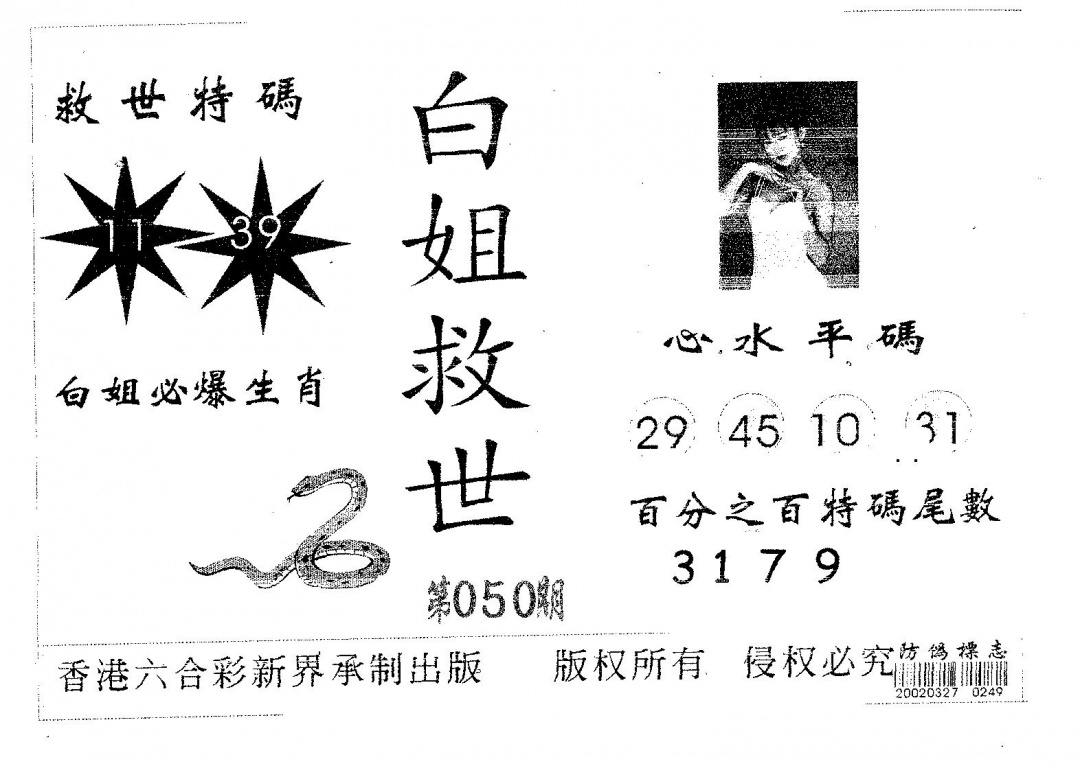 救世特碼
11 39
白姐必爆生肖
白姐救世
第050期
心水平碼
29 45 10 31
百分之百特碼尾數
3 1 7 9
香港六合彩新界承制出版 版权所有 侵权必究
防偽標志
20020327 0249